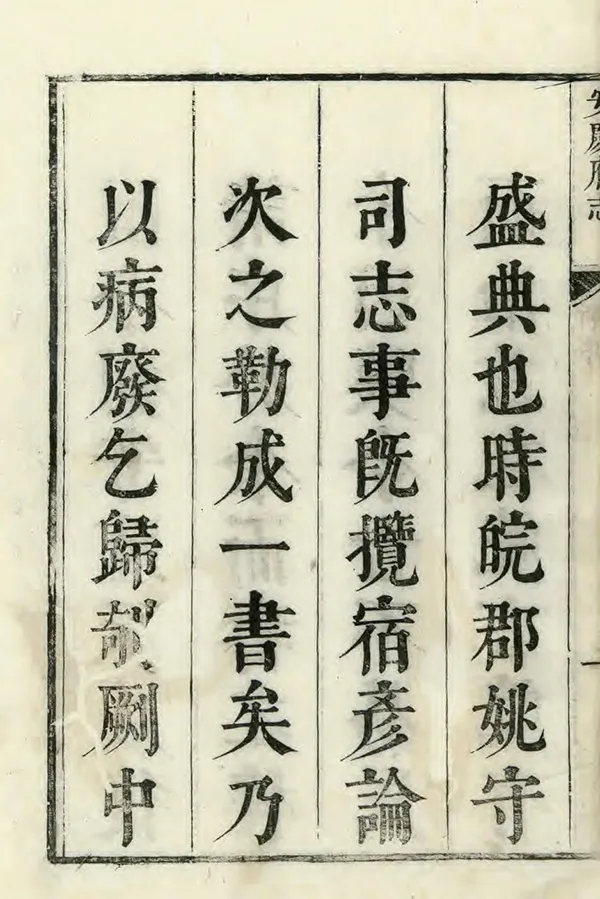 安慶府志
盛典也時皖郡姚守
司志事旣攬宿彥論
次之勒成一書矣乃
以病廢乞歸剞劂中
一